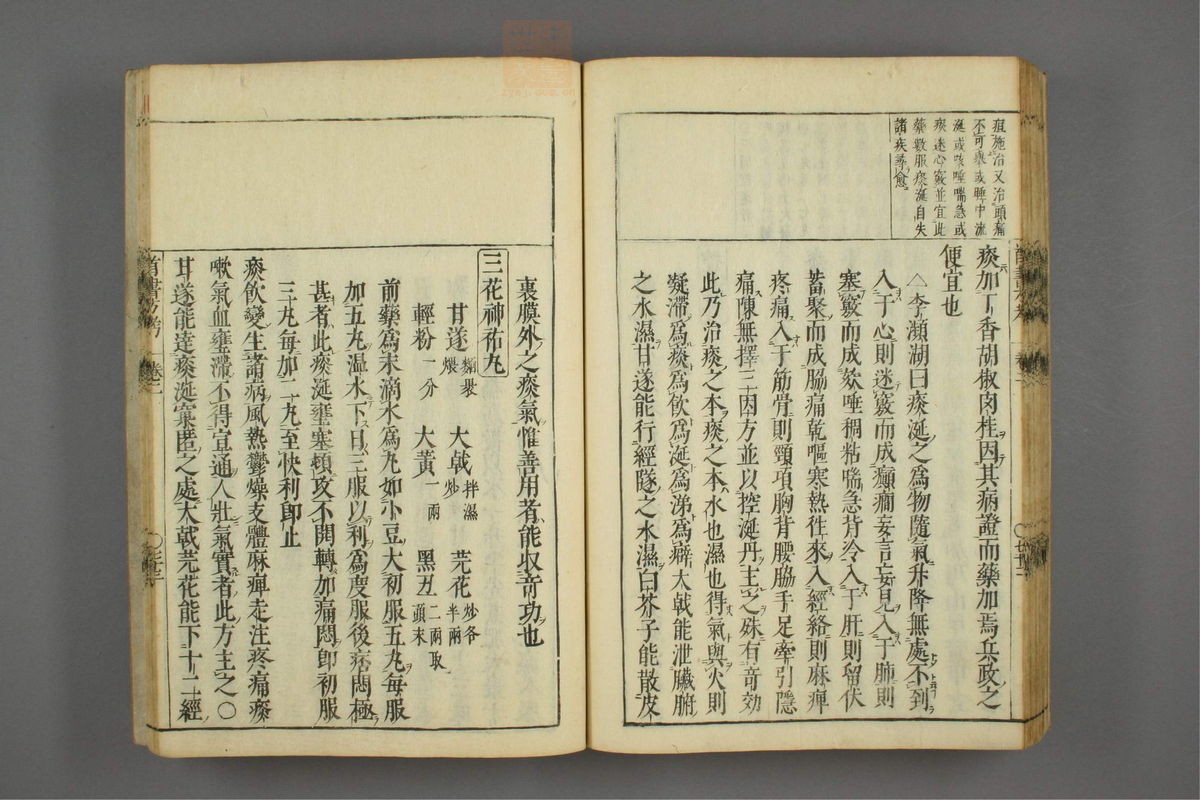 疽施治又治頭痛
不可擧或睡中流
涎或咳唾喘急或
痰迷心竅並宜此
藥數服痰涎自失
諸疾尋愈
痰加丁香胡椒肉桂因其病證而藥加焉兵政之
便宜也
△李瀕湖曰痰涎之爲物隨氣升降無處不到
入于心則迷竅而成癲癇妄言妄見入于肺則
塞竅而成欬唾稠粘喘急背冷入于肝則留伏
蓄聚而成脇痛乾嘔寒熱徃來入經絡則麻痺
疼痛入于筋骨則頸項胸背腰脇手足牽引隱
痛陳無擇三因方並以控涎丹主之殊有竒効
此乃治痰之本痰之本水也濕也得氣與火則
凝滯爲痰爲飲爲涎爲涕爲癖大戟能泄臟腑
之水濕甘遂能行經隧之水濕白芥子能散皮
裏膜外之痰氣惟善用者能収竒功也
三花神祐丸
甘遂麵裹煨 大戟拌濕炒 芫花炒各半兩
輕粉一分 大黃一兩 黑丑二兩取頭末
前藥爲末滴水爲丸如小豆大初服五丸每服
加五丸温水下日三服以利爲度服後痞悶極
甚者此痰涎壅塞頓攻不開轉加痛悶卽初服
三丸每加二丸至快利卽止
痰飲變生諸病風熱鬱燥支體麻痺走注疼痛痰
嗽氣血壅滯不得宣通人壯氣實者此方主之〇
甘遂能達痰涎窠匿之處大戟芫花能下十二經